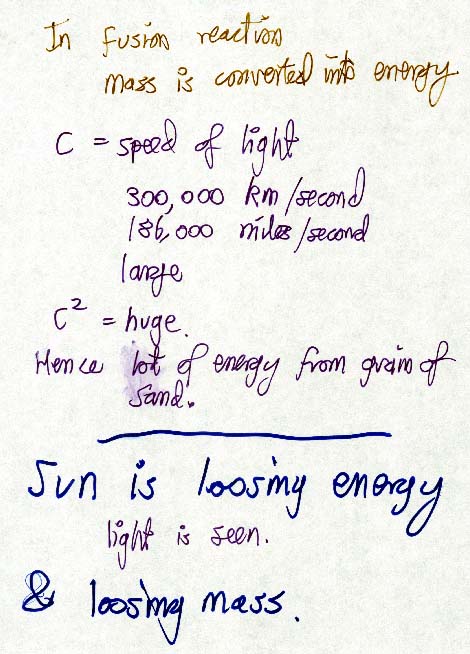 In fusion reaction
mass is converted into energy
C = speed of light
300,000 km/second
186,000 miles/second
large
C² = huge.
Hence lot of energy from grain of
sand.
Sun is loosing energy
light is seen.
& loosing mass.